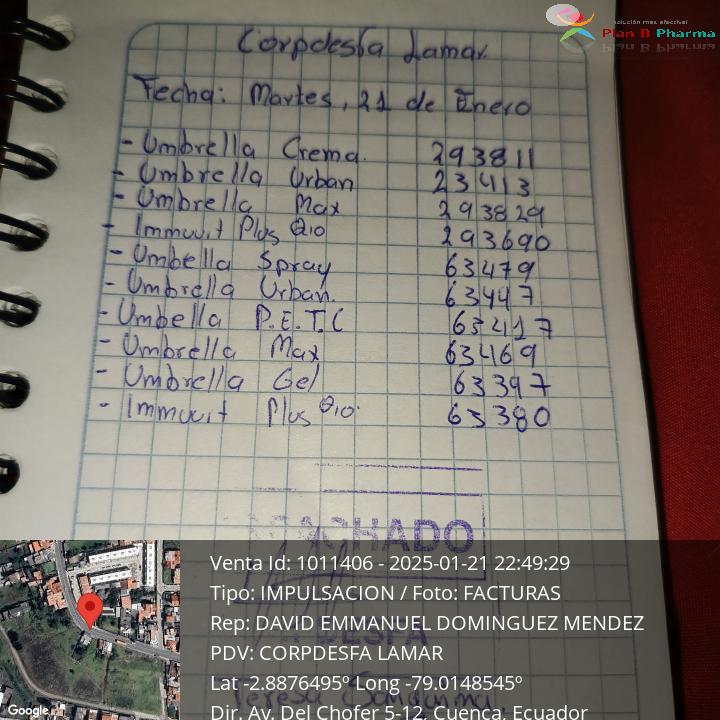 solución más efectiva!
Plan B Pharma
Corpdesfa Lamar.
Fecha: Martes, 21 de Enero
- Umbrella Crema. 293811
- Umbrella Urban 23413
- Umbrella Max 293829
- Immuvit Plus Q10 293690
- Umbella Spray 63479
- Umbrella Urban. 63447
- Umbella P.E.T.C 63417
- Umbrella Max 63469
- Umbrella Gel 63397
- Immuvit Plus Q10. 63380
MACHADO
Venta Id: 1011406 - 2025-01-21 22:49:29
Tipo: IMPULSACION / Foto: FACTURAS
Rep: DAVID EMMANUEL DOMINGUEZ MENDEZ
PDV: CORPDESFA LAMAR
Lat -2.8876495º Long -79.0148545º
Dir. Av. Del Chofer 5-12, Cuenca, Ecuador
Google